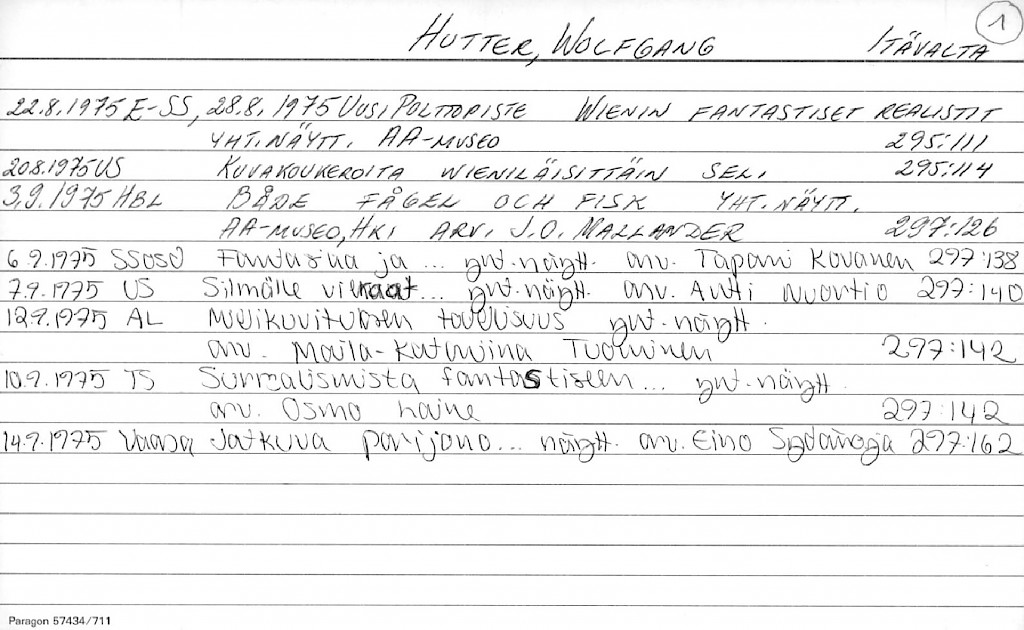 1
HUTTER, WOLFGANG ITÄVALTA
22.8.1975 E-SS, 28.8.1975 UUSI POLTTOPISTE WIENIN FANTASTISET REALISTIT
YHT.NÄYTT. AA-MUSEO 295:111
20.8.1975 US KUVAKOUKEROITA WIENILÄISITTÄIN SEL. 295:114
3.9.1975 HBL BÅDE FÅGEL OCH FISK YHT.NÄYTT.
AA-MUSEO, HKI ARV. J.O. MALLANDER 297:126
6.9.1975 SSOSD Fantasiaa ja ... yht.näytt. arv. Tapani Kovanen 297:138
7.9.1975 US Silmälle vieraat... yht.näytt. arv. Antti Nuortio 297:140
12.9.1975 AL Mielikuvituksen todellisuus yht.näytt.
arv. Maila-Katariina Tuominen 297:142
10.9.1975 TS Surrealismista fantastiseen... yht.näytt.
arv. Osmo Laine 297:142
14.9.1975 Vaasa Jatkuva parijono... näytt. arv. Eino 297:162
Paragon 57434/711